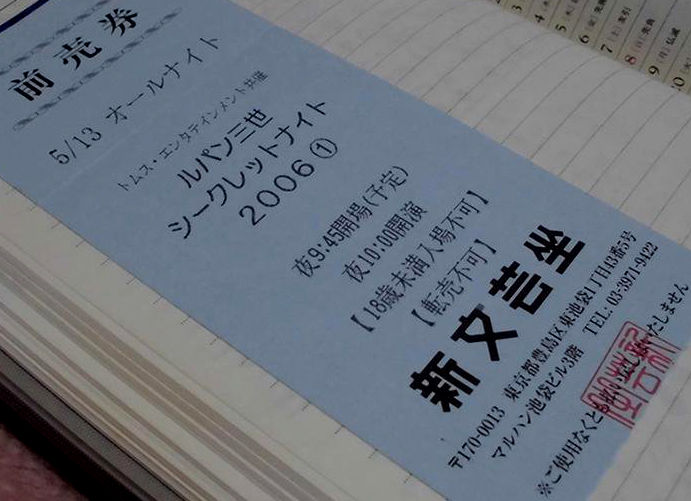 前売券
5/13 オールナイト
トムス・エンタテインメント共催
ルパン三世
シークレットナイト
2006①
夜9:45開場(予定)
夜10:00開演
【18歳未満入場不可】
【転売不可】
新文芸坐
〒170-0013 東京都豊島区東池袋1丁目43番5号
マルハン池袋ビル3階 TEL: 03-3971-9422
※ご使用なくとも払い戻しはいたしません
3
4
5
6
7
8
9